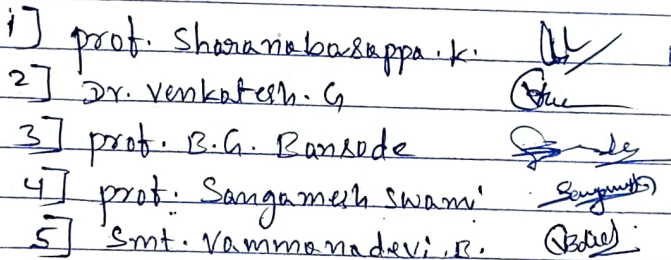 1] prof. Sharanabasappa. K.
2] Dr. Venkatesh. G
3] prof. B.G. Bansode
4] prof. Sangamesh Swami
5] Smt. Vammanadevi. B.